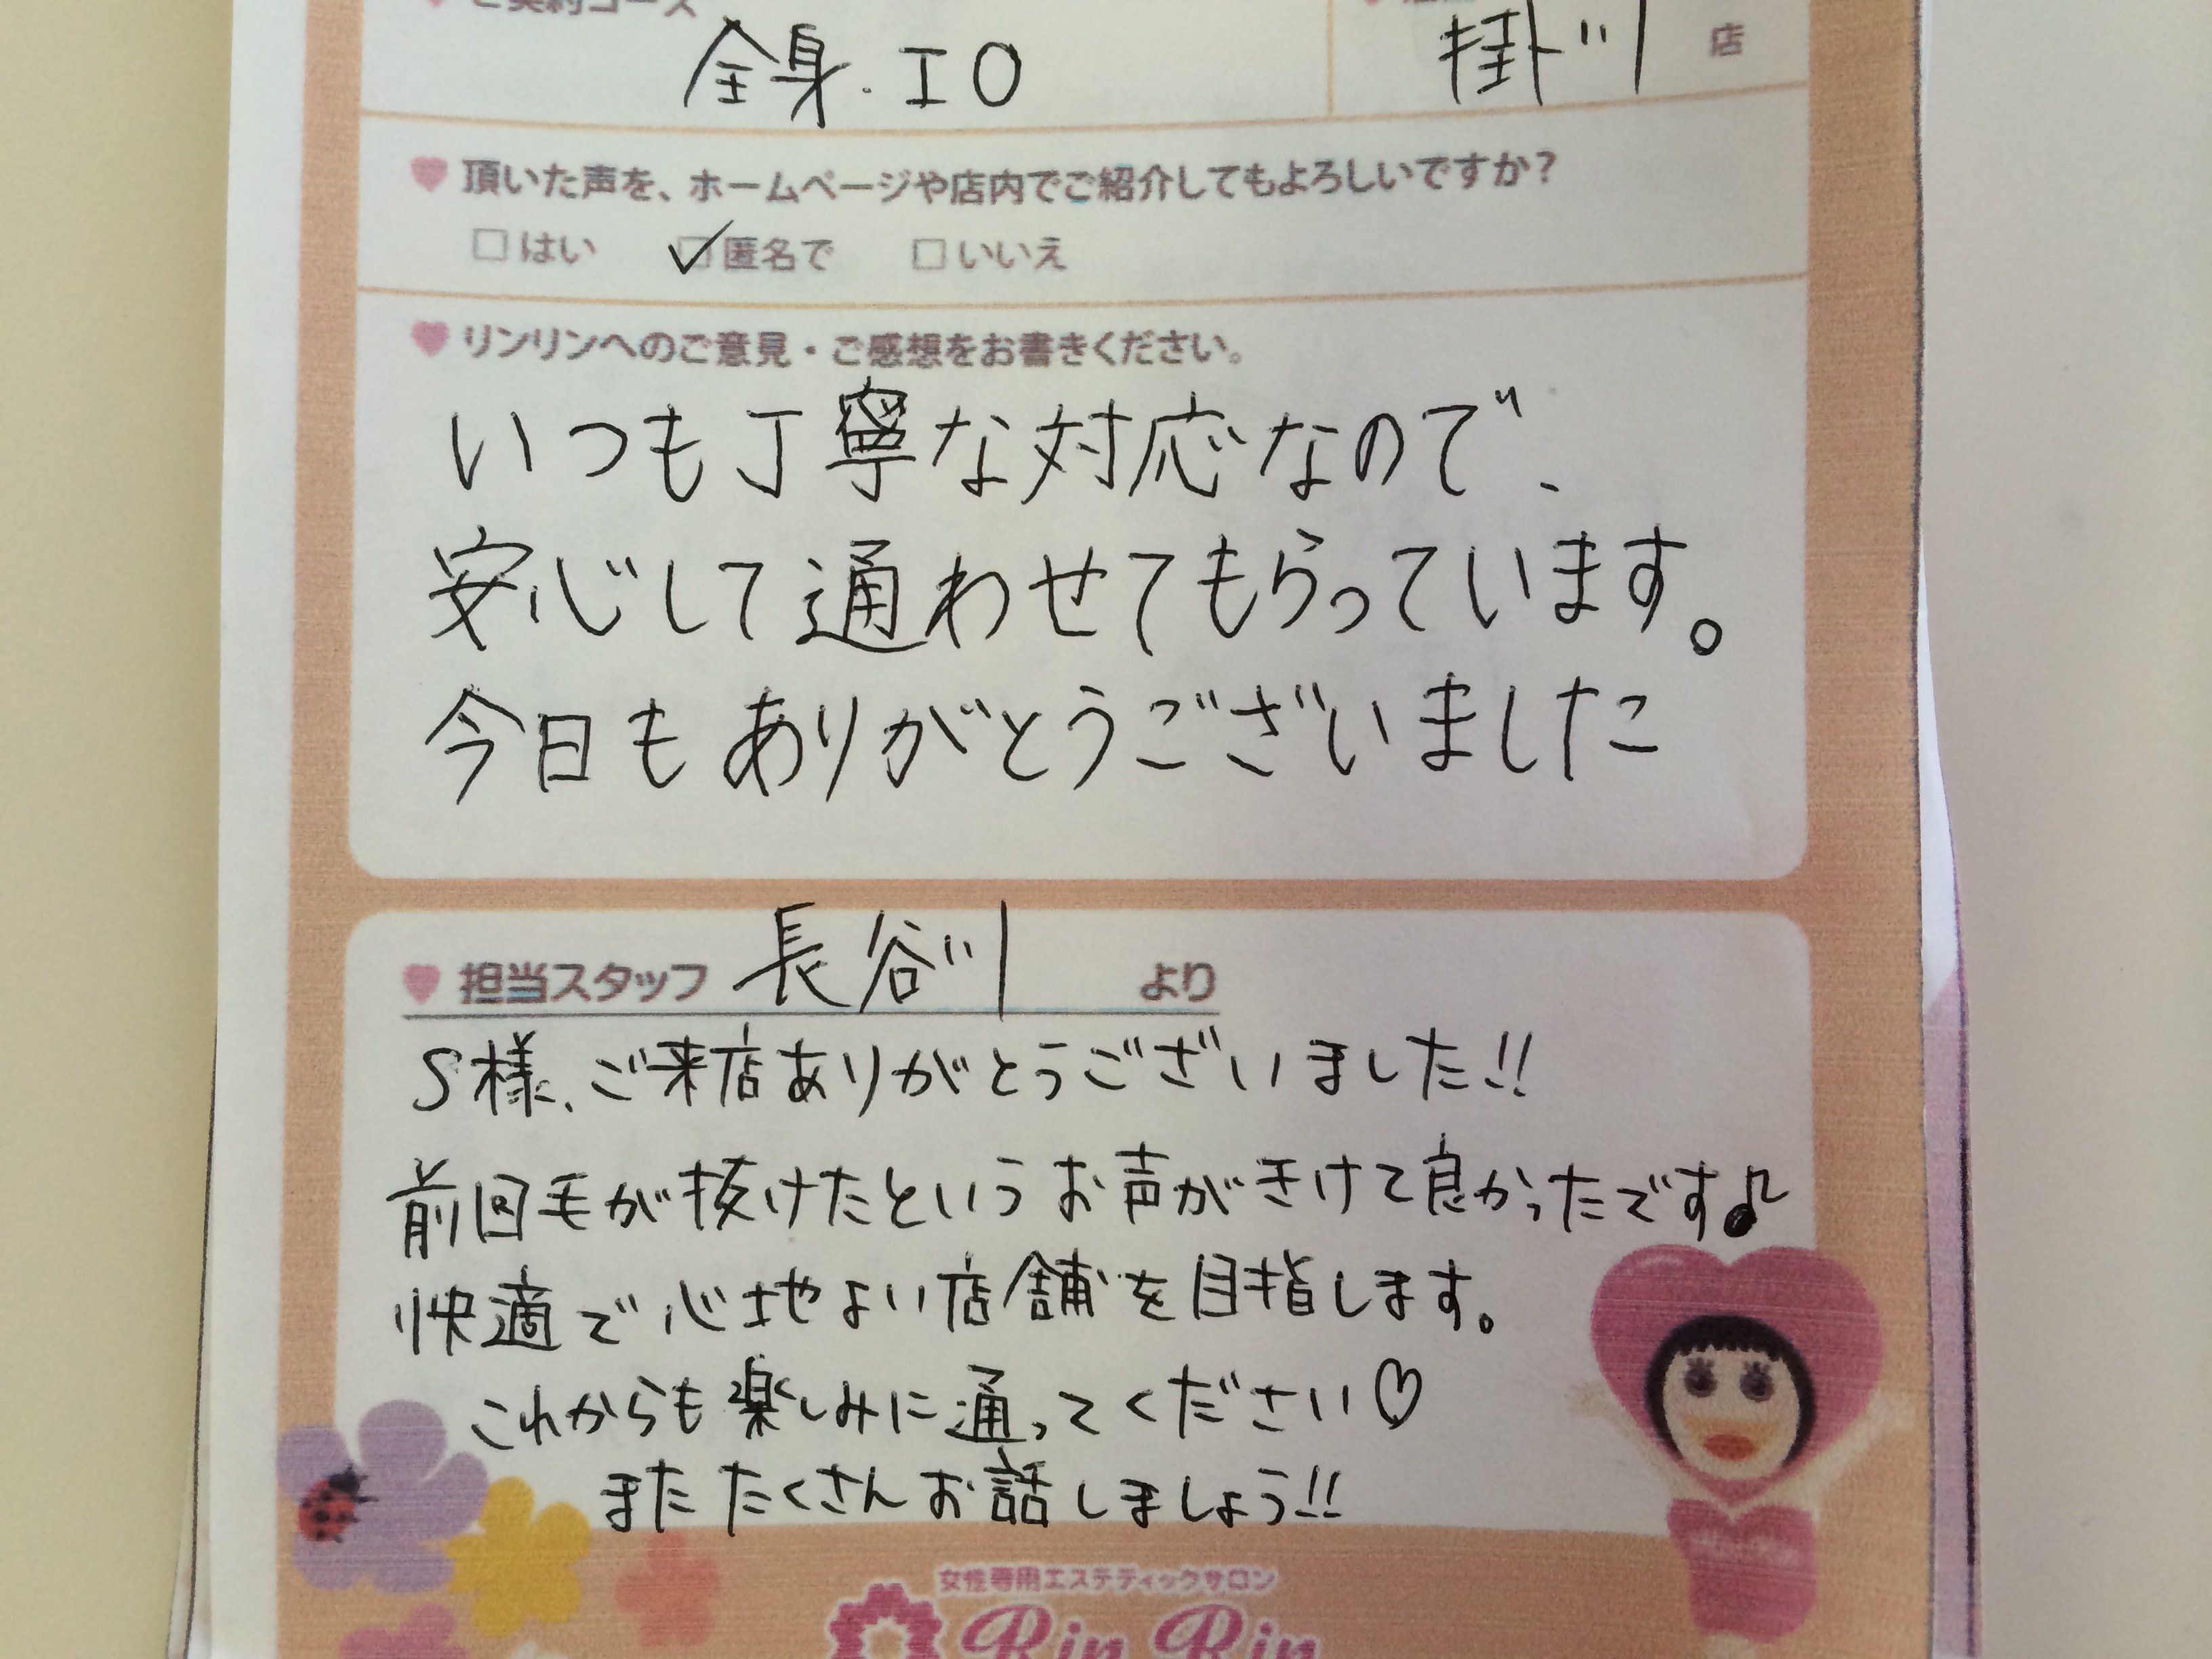 ご契約コース
全身.IO
掛川 店
頂いた声を、ホームページや店内でご紹介してもよろしいですか？
□はい ☑匿名で □いいえ
リンリンへのご意見・ご感想をお書きください。
いつも丁寧な対応なので、
安心して通わせてもらっています。
今日もありがとうございました
担当スタッフ 長谷川 より
S様、ご来店ありがとうございました!!
前回毛が抜けたというお声がきけて良かったです♪
快適で心地よい店舗を目指します。
これからも楽しみに通ってください♡
またたくさんお話しましょう!!
女性専用エステティックサロン
Rin Rin